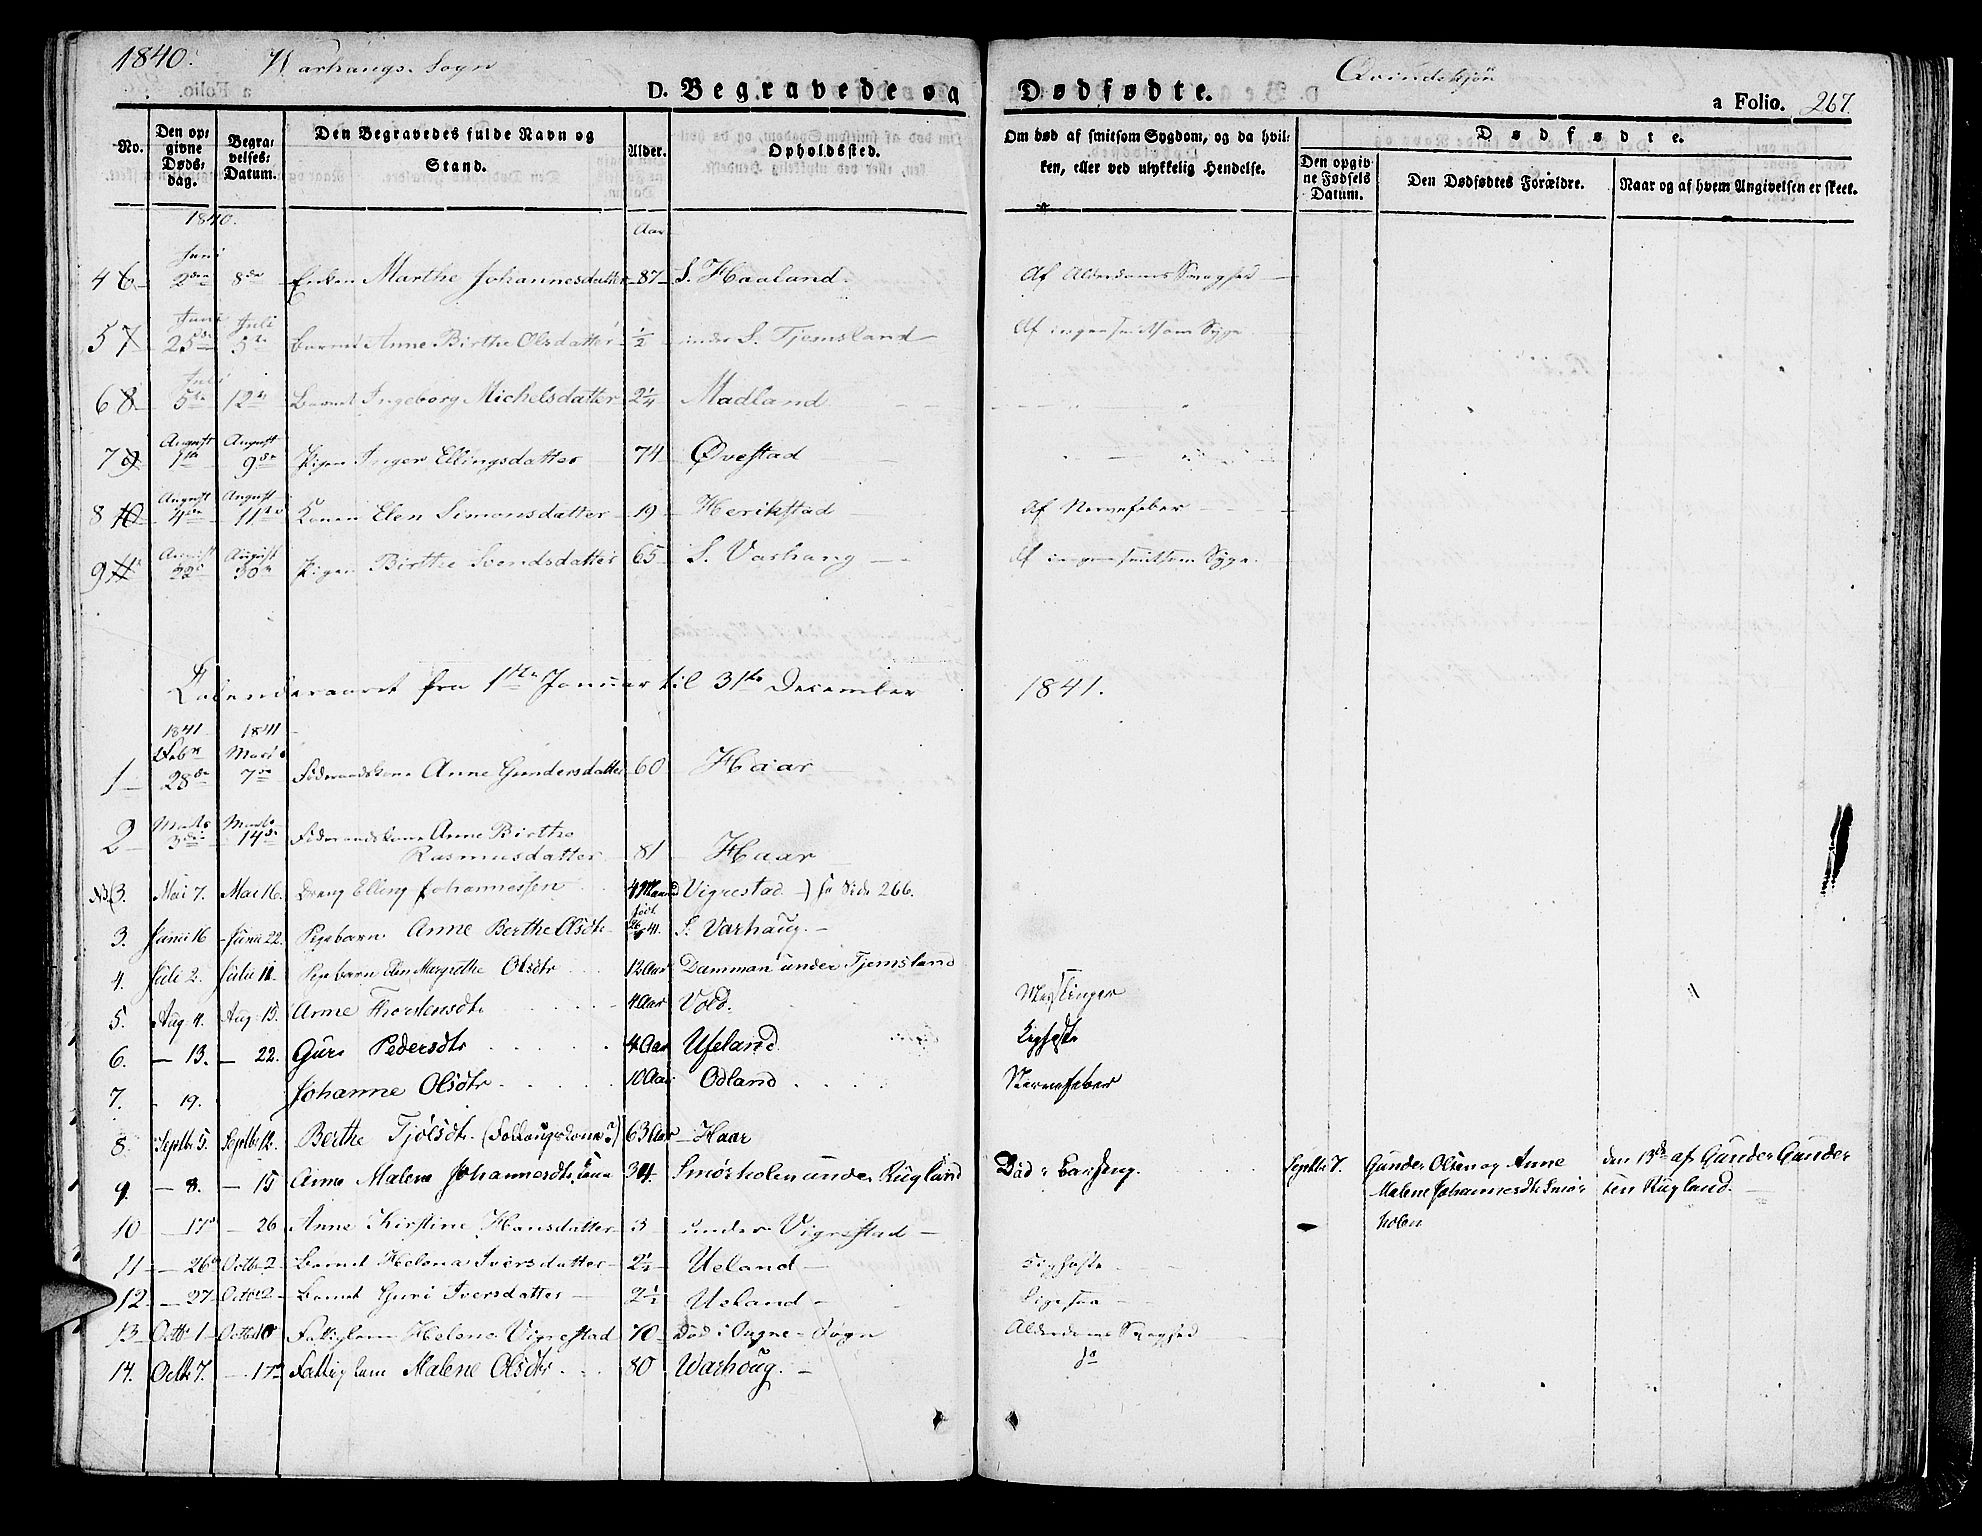 1840. Warhaugs Sogn
Qvindekjön
D. Begravede og Dødfødte.
a Folio. 267.
No.
Den opgivne Døds-dag.
Begravelses-Datum.
Den Begravedes fulde Navn og Stand.
Alder.
Opholdsted.
Om død af smitsom Sygdom, og da hvilken, eller ved ulykkelig Hendelse.
Dødfødte.
Den opgivne Fødsels Datum.
Den Dødfødtes Forældre.
Naar og af hvem Angivelsen er skeet.
1840. Aar
4 6 Juni 2den 8de Enken Marthe Johannesdatter 87 S. Haaland. Af Alderdoms Svaghed
5 7 Juni 25de Juli 5te Barnet Anne Birthe Olsdatter 1/2 under S. Tjemsland Af ingen smitsom Syge
6 8 Juli 5te 12te Barnet Ingeborg Michelsdatter 2 1/4 Madland
7 9 August 1ste August 9de Pigen Inger Ellingsdatter 74 Øvestad
8 10 August 4de August 11te Konen Elen Simonsdatter 19 Herikstad Af Nervefeber
9 11 August 22de August 30te Pigen Birthe Svendsdatter 65 S. Varhaug Af ingen smitsom Syge
Kalenderaaret fra 1ste Januar til 31te December 1841.
1841 1841
1 Febr 28de Marts 7de Föderaadskone Anne Gundersdatter 60 Haar
2 Marts 3die Marts 14de Föderaadskone Anne Birthe
Rasmusdatter 81 Haar
NB(3. Mai 7. Mai 16. Dreng Elling Johannessen 4 Maaned Vigrestad ) se Side 266.
3. Junii 16 Junii 22. Pigebarn Anne Berthe Olsdtr født 41. S. Varhaug.
4. Juli 2. Julii 11. Pigebarn Elen Margrethe Olsdtr 12 Aar Damman under Tjemsland
5. Aug 4. Aug. 15. Anne Thorstensdtr 4 Aar Vold. Meslinger
6. 13. 22. Guri Pedersdtr 4 Aar Ufeland Kighoste
7. 19. Johanne Olsdtr 10 Aar Odland Nervefeber
8. Septbr 5. Septbr 12. Berthe Tjölsdtr. 63 Aar Haar
9. 8. 15 Anne Malene Johannesdtr. Kone 34. Smörholen under Rugland Död i Barseng. Septbr 7. Gunder Olsen og Anne den 13de af Gunder Gunder
Malene Johannesdtr Smör- sen Rugland.
holen
10 17de 26 Anne Kirstine Hansdatter 3 under Vigrestad
11 26de Octbr 2 Barnet Helena Iversdatter 2 1/2 Ueland Kighoste
12 27 Octbr 2 Barnet Guri Iversdatter 2 1/2 Ueland
13 Octb. 1 Octb. 10 Fattiglem Helene Vigrestad 70 Död i Ougne Sogn Alderdoms Svaghed
14. Octb 7. 17de Fattiglem Malene Olsdtr 80 Warhoug. do